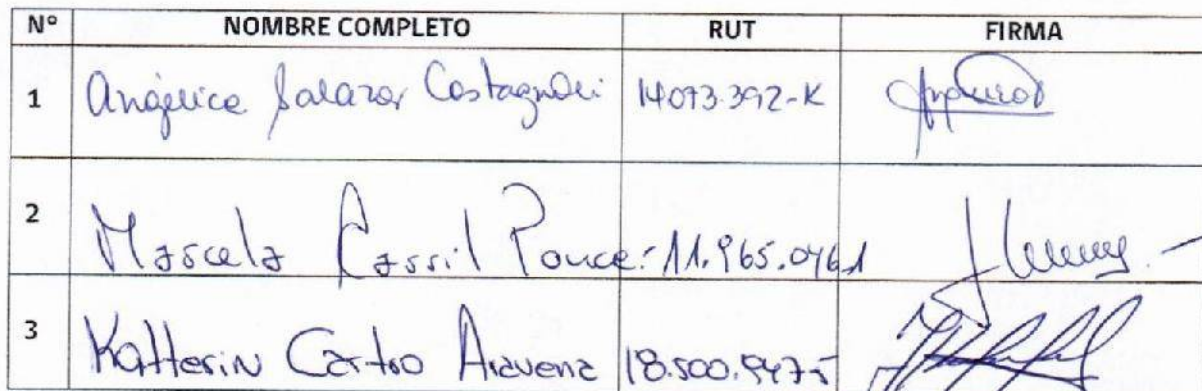 N° NOMBRE COMPLETO RUT FIRMA
1 Angélica Salazar Castagnoli 14.073.392-K
2 Marcela Cassil Ponce. 11.965.046-1
3 Katterin Castro Aravena 18.500.947-5